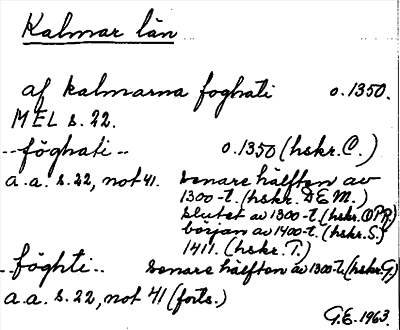 Kalmar län
af kalmarna foghati o.1350.
MEL s. 22.
--föghati-- o.1350 (hskr. C.)
a.a. s.22, not 41. senare hälften av
1300-t. (hskr. D E M.)
slutet av 1300-t. (hskr. O P R.)
början av 1400-t. (hskr. S.)
1411. (hskr. T.)
--föghti.. senare hälften av 1300-t. (hskr. G)
a.a. s.22, not 41 (forts.)
G.E. 1963.